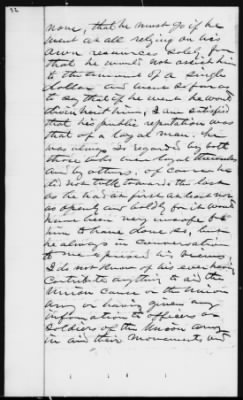 32
now, that he must go if he
went at all relying on his
own resources solely for
that he would not assist him
to the amount of a single
dollar and went so far as
to say that if he went he would
disinherit him, I am satisfied
that his public reputation was
that of a loyal man. he
was always so regarded by both
those who were loyal themselves
and by others. of course he
did not talk towards the last
as he had at first at least not
as openly and boldly for it would
have been very unsafe for
him to have done so, but
he always in conversation
to me expressed his views
I do not know of his ever having
contribute anything to aid the
Union cause or the Union
army or having given any
information to officers or
soldiers of the Union army
to aid their movements and